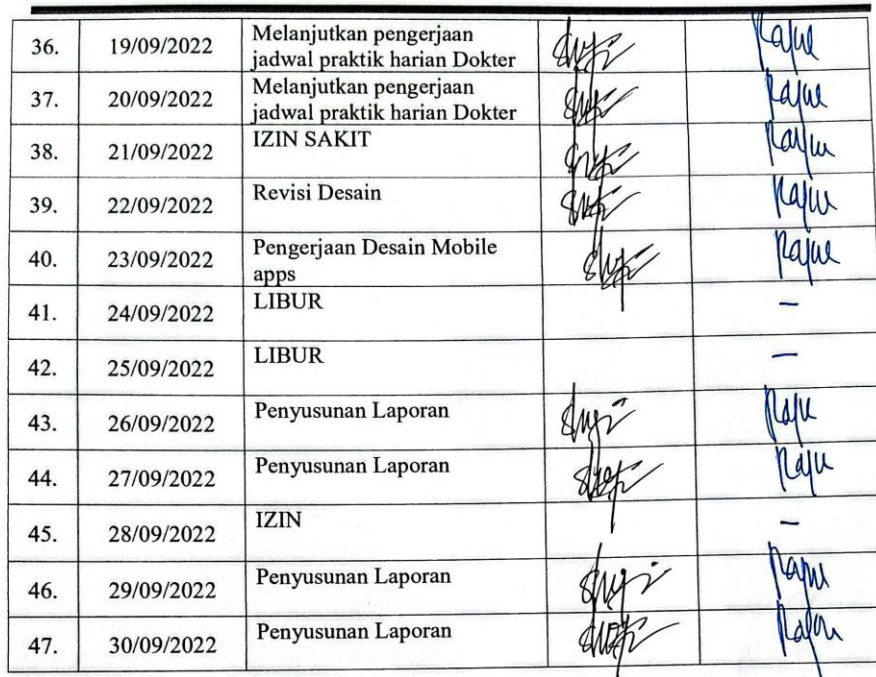 36. 19/09/2022 Melanjutkan pengerjaan
jadwal praktik harian Dokter
37. 20/09/2022 Melanjutkan pengerjaan
jadwal praktik harian Dokter
38. 21/09/2022 IZIN SAKIT
39. 22/09/2022 Revisi Desain
40. 23/09/2022 Pengerjaan Desain Mobile
apps
41. 24/09/2022 LIBUR –
42. 25/09/2022 LIBUR –
43. 26/09/2022 Penyusunan Laporan
44. 27/09/2022 Penyusunan Laporan
45. 28/09/2022 IZIN –
46. 29/09/2022 Penyusunan Laporan
47. 30/09/2022 Penyusunan Laporan